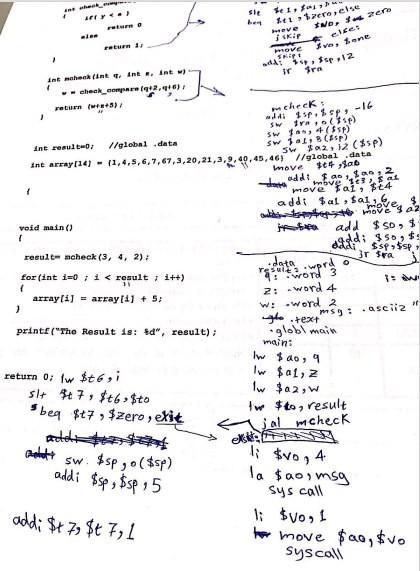 int check_compa
{
if( y < a )
return 0
else
return 1;
int mcheck(int q, int z, int w)
{
w = check_compare(q+2,q+6);
return (w+z+5);
}
int result=0; //global .data
int array[14] = {1,4,5,6,7,67,3,20,21,3,9,40,45,46} //global .data
{
void main()
{
result= mcheck(3, 4, 2);
for(int i=0 ; i < result ; i++)
{
array[i] = array[i] + 5;
}
printf("The Result is: %d", result);
return 0;
lw $t6,i
slt $t7,$t6,$t0
beq $t7,$zero,exit
sw $sp,0($sp)
addi $sp,$sp,5
addi $t7,$t7,1
slt $t1,$a1,
beq $t1,$zero,else
move $v0,$zero
j skip
else:
move $v0,$one
skip:
addi $sp,$sp,12
jr $ra
mcheck:
addi $sp,$sp,-16
sw $ra,0($sp)
sw $a0,4($sp)
sw $a1,8($sp)
sw $a2,12($sp)
move $t4,$a0
addi $a0,$a0,2
move $t3,$a1
move $a1,$t4
addi $a1,$a1,6
move $
move $a2
add $s0,$
addi $s0,$s
addi $sp,$sp,
jr $ra
.data
result: .word 0
q: .word 3
z: .word 4
w: .word 2
msg: .asciiz "
.text
.globl main
main:
lw $a0,q
lw $a1,z
lw $a2,w
lw $t0,result
jal mcheck
exit:
li $v0,4
la $a0,msg
syscall
li $v0,1
move $a0,$v0
syscall